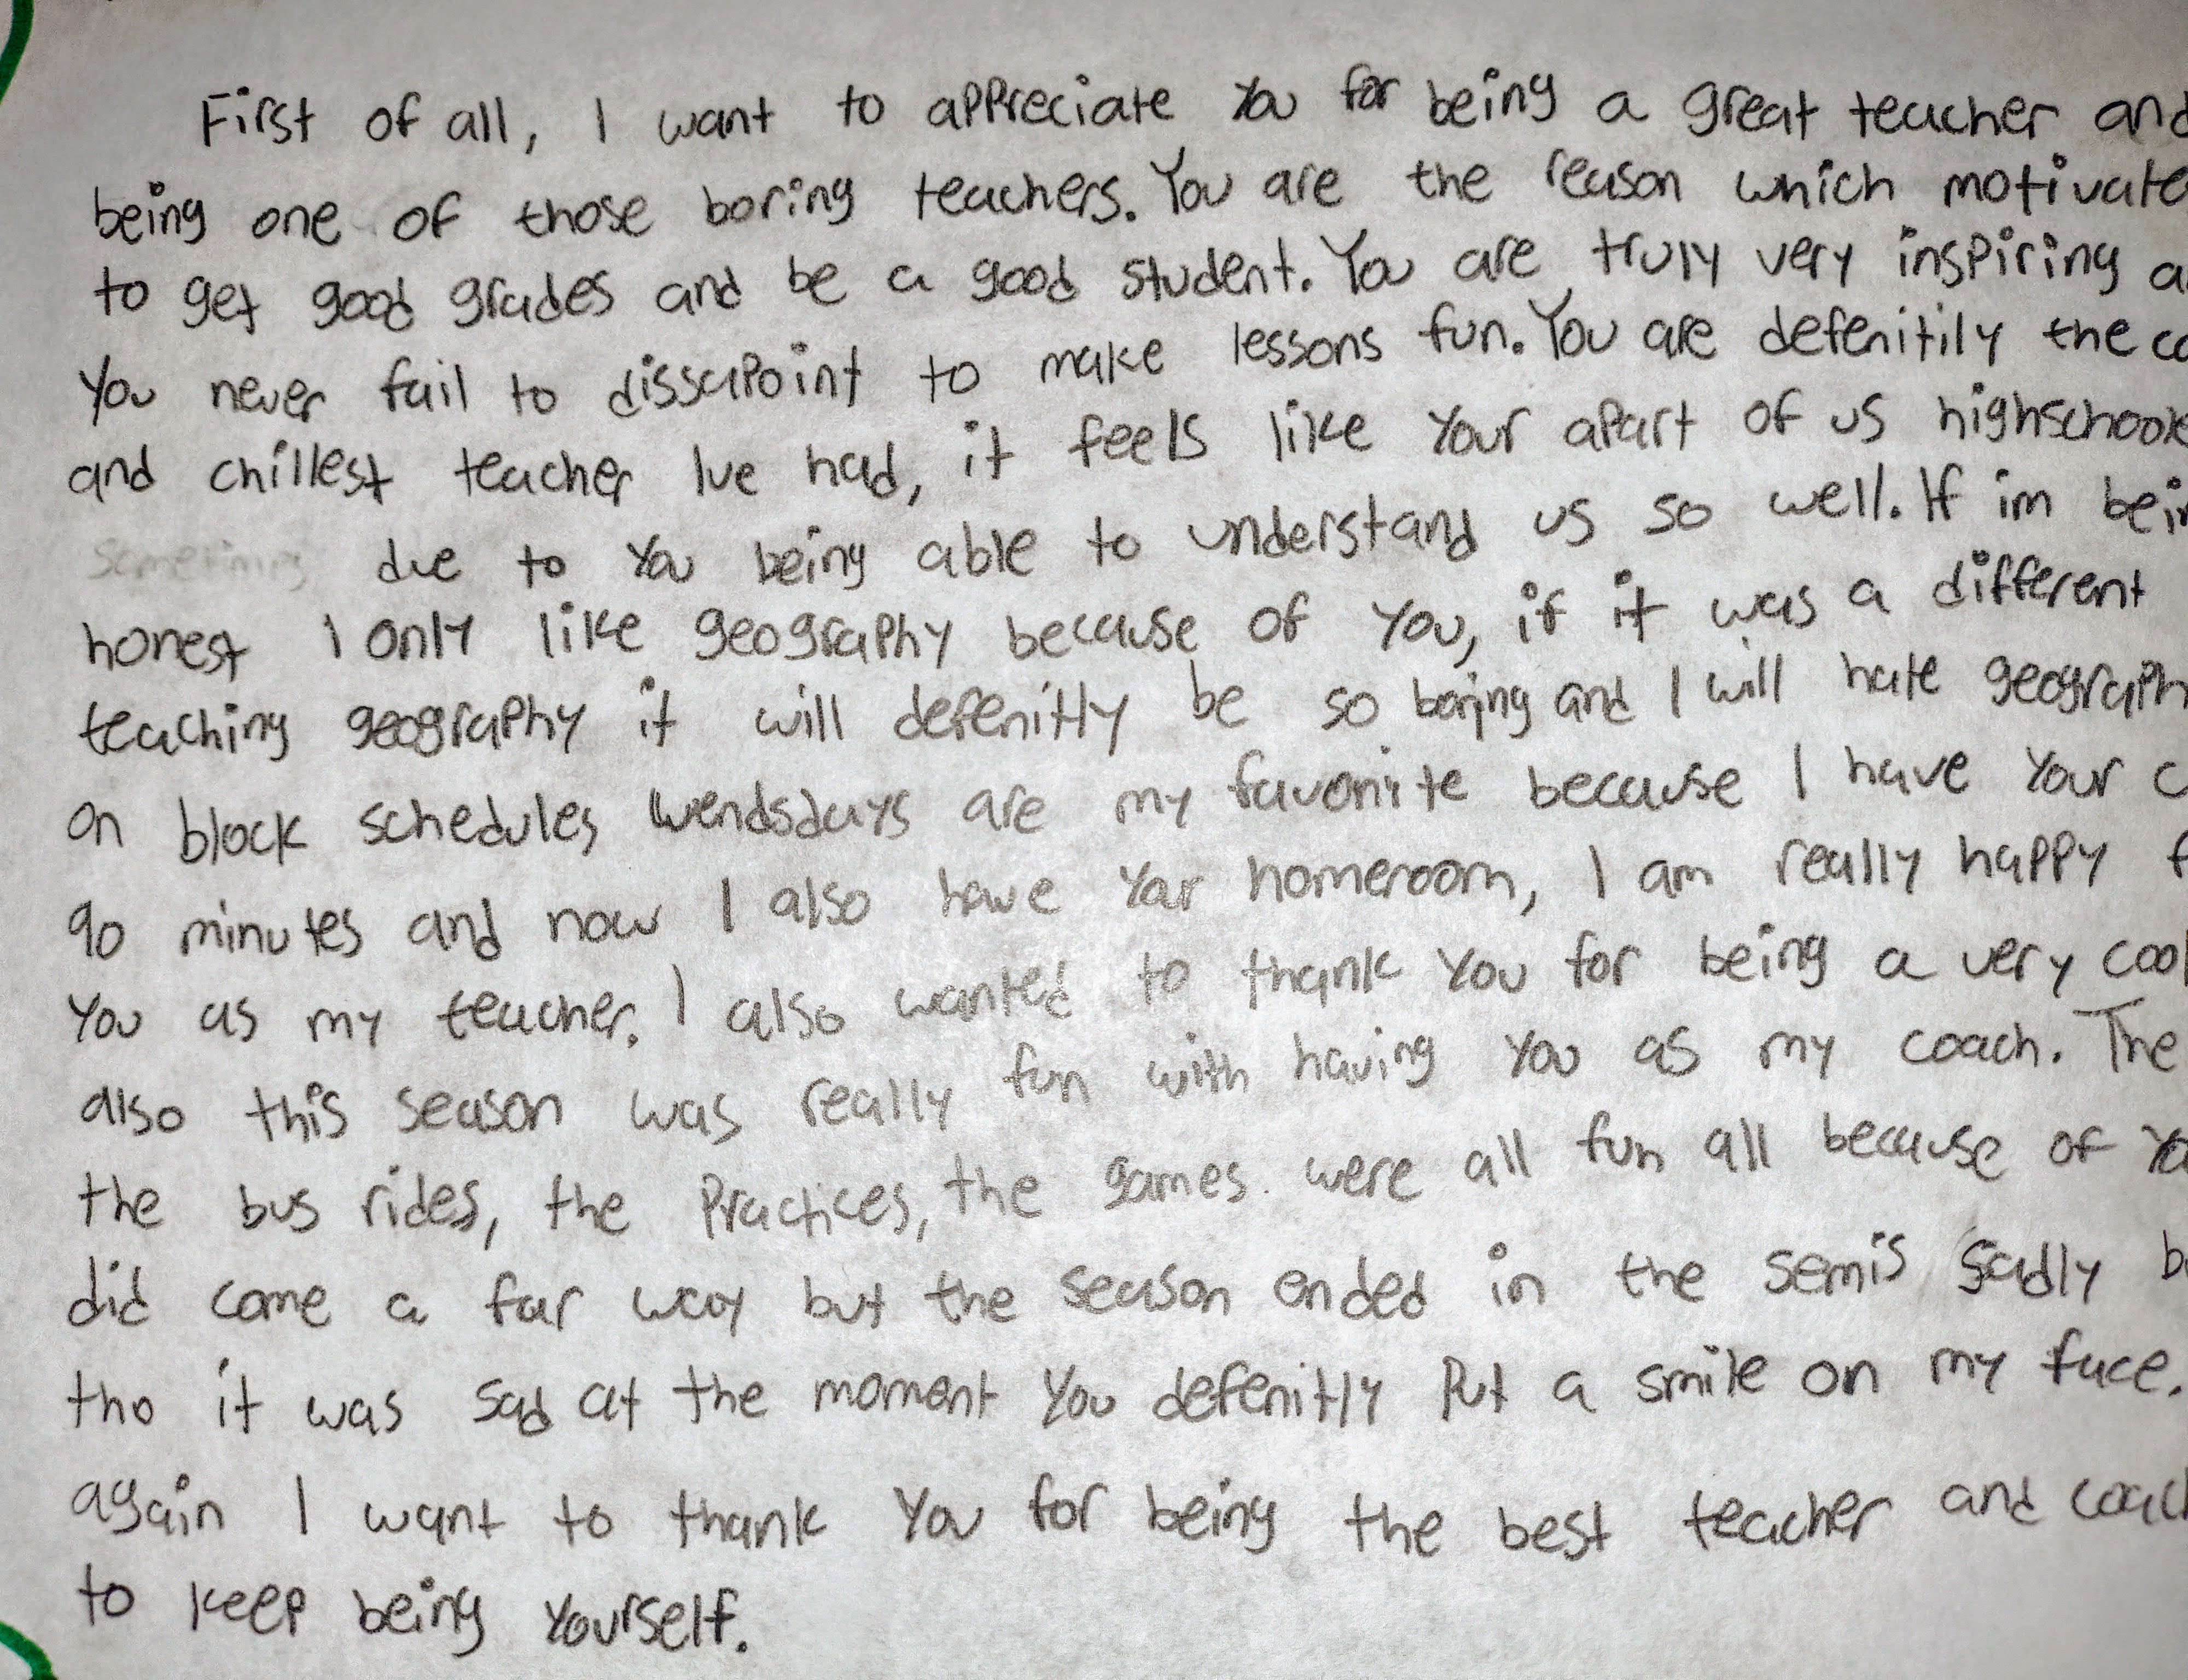 First of all, I want to appreciate you for being a great teacher and
being one of those boring teachers. You are the reason which motivate
to get good grades and be a good student. You are truly very inspiring a
You never fail to dissapoint to make lessons fun. You are defenitily the co
and chillest teacher Ive had, it feels like your apart of us highschoole
Sometimes due to you being able to understand us so well. If im bein
honest I only like geography because of you, if it was a different
teaching geography it will defenitly be so boring and I will hate geograph
on block schedules wendsdays are my favorite because I have your c
90 minutes and now I also have your homeroom, I am really happy f
you as my teacher. I also wanted to thank you for being a very cool
also this season was really fun with having you as my coach. The
the bus rides, the practices, the games were all fun all because of yo
did come a far way but the season ended in the semis sadly b
tho it was sad at the moment you defenitly put a smile on my face.
again I want to thank you for being the best teacher and coach
to keep being yourself.